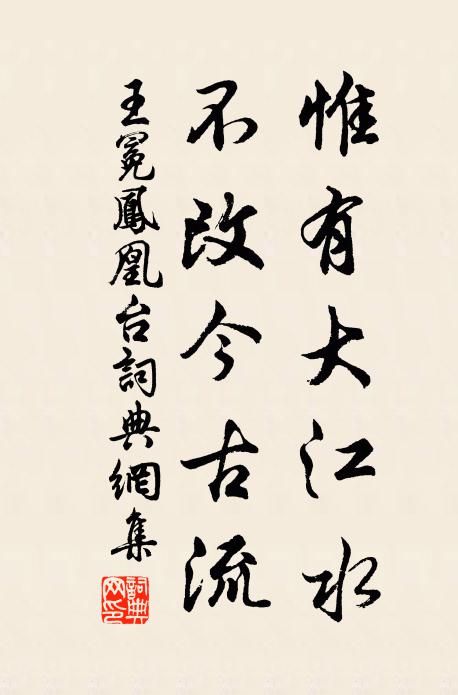 惟有大江水
不改今古流
王冕鳳凰台詞典網集
詞典網印